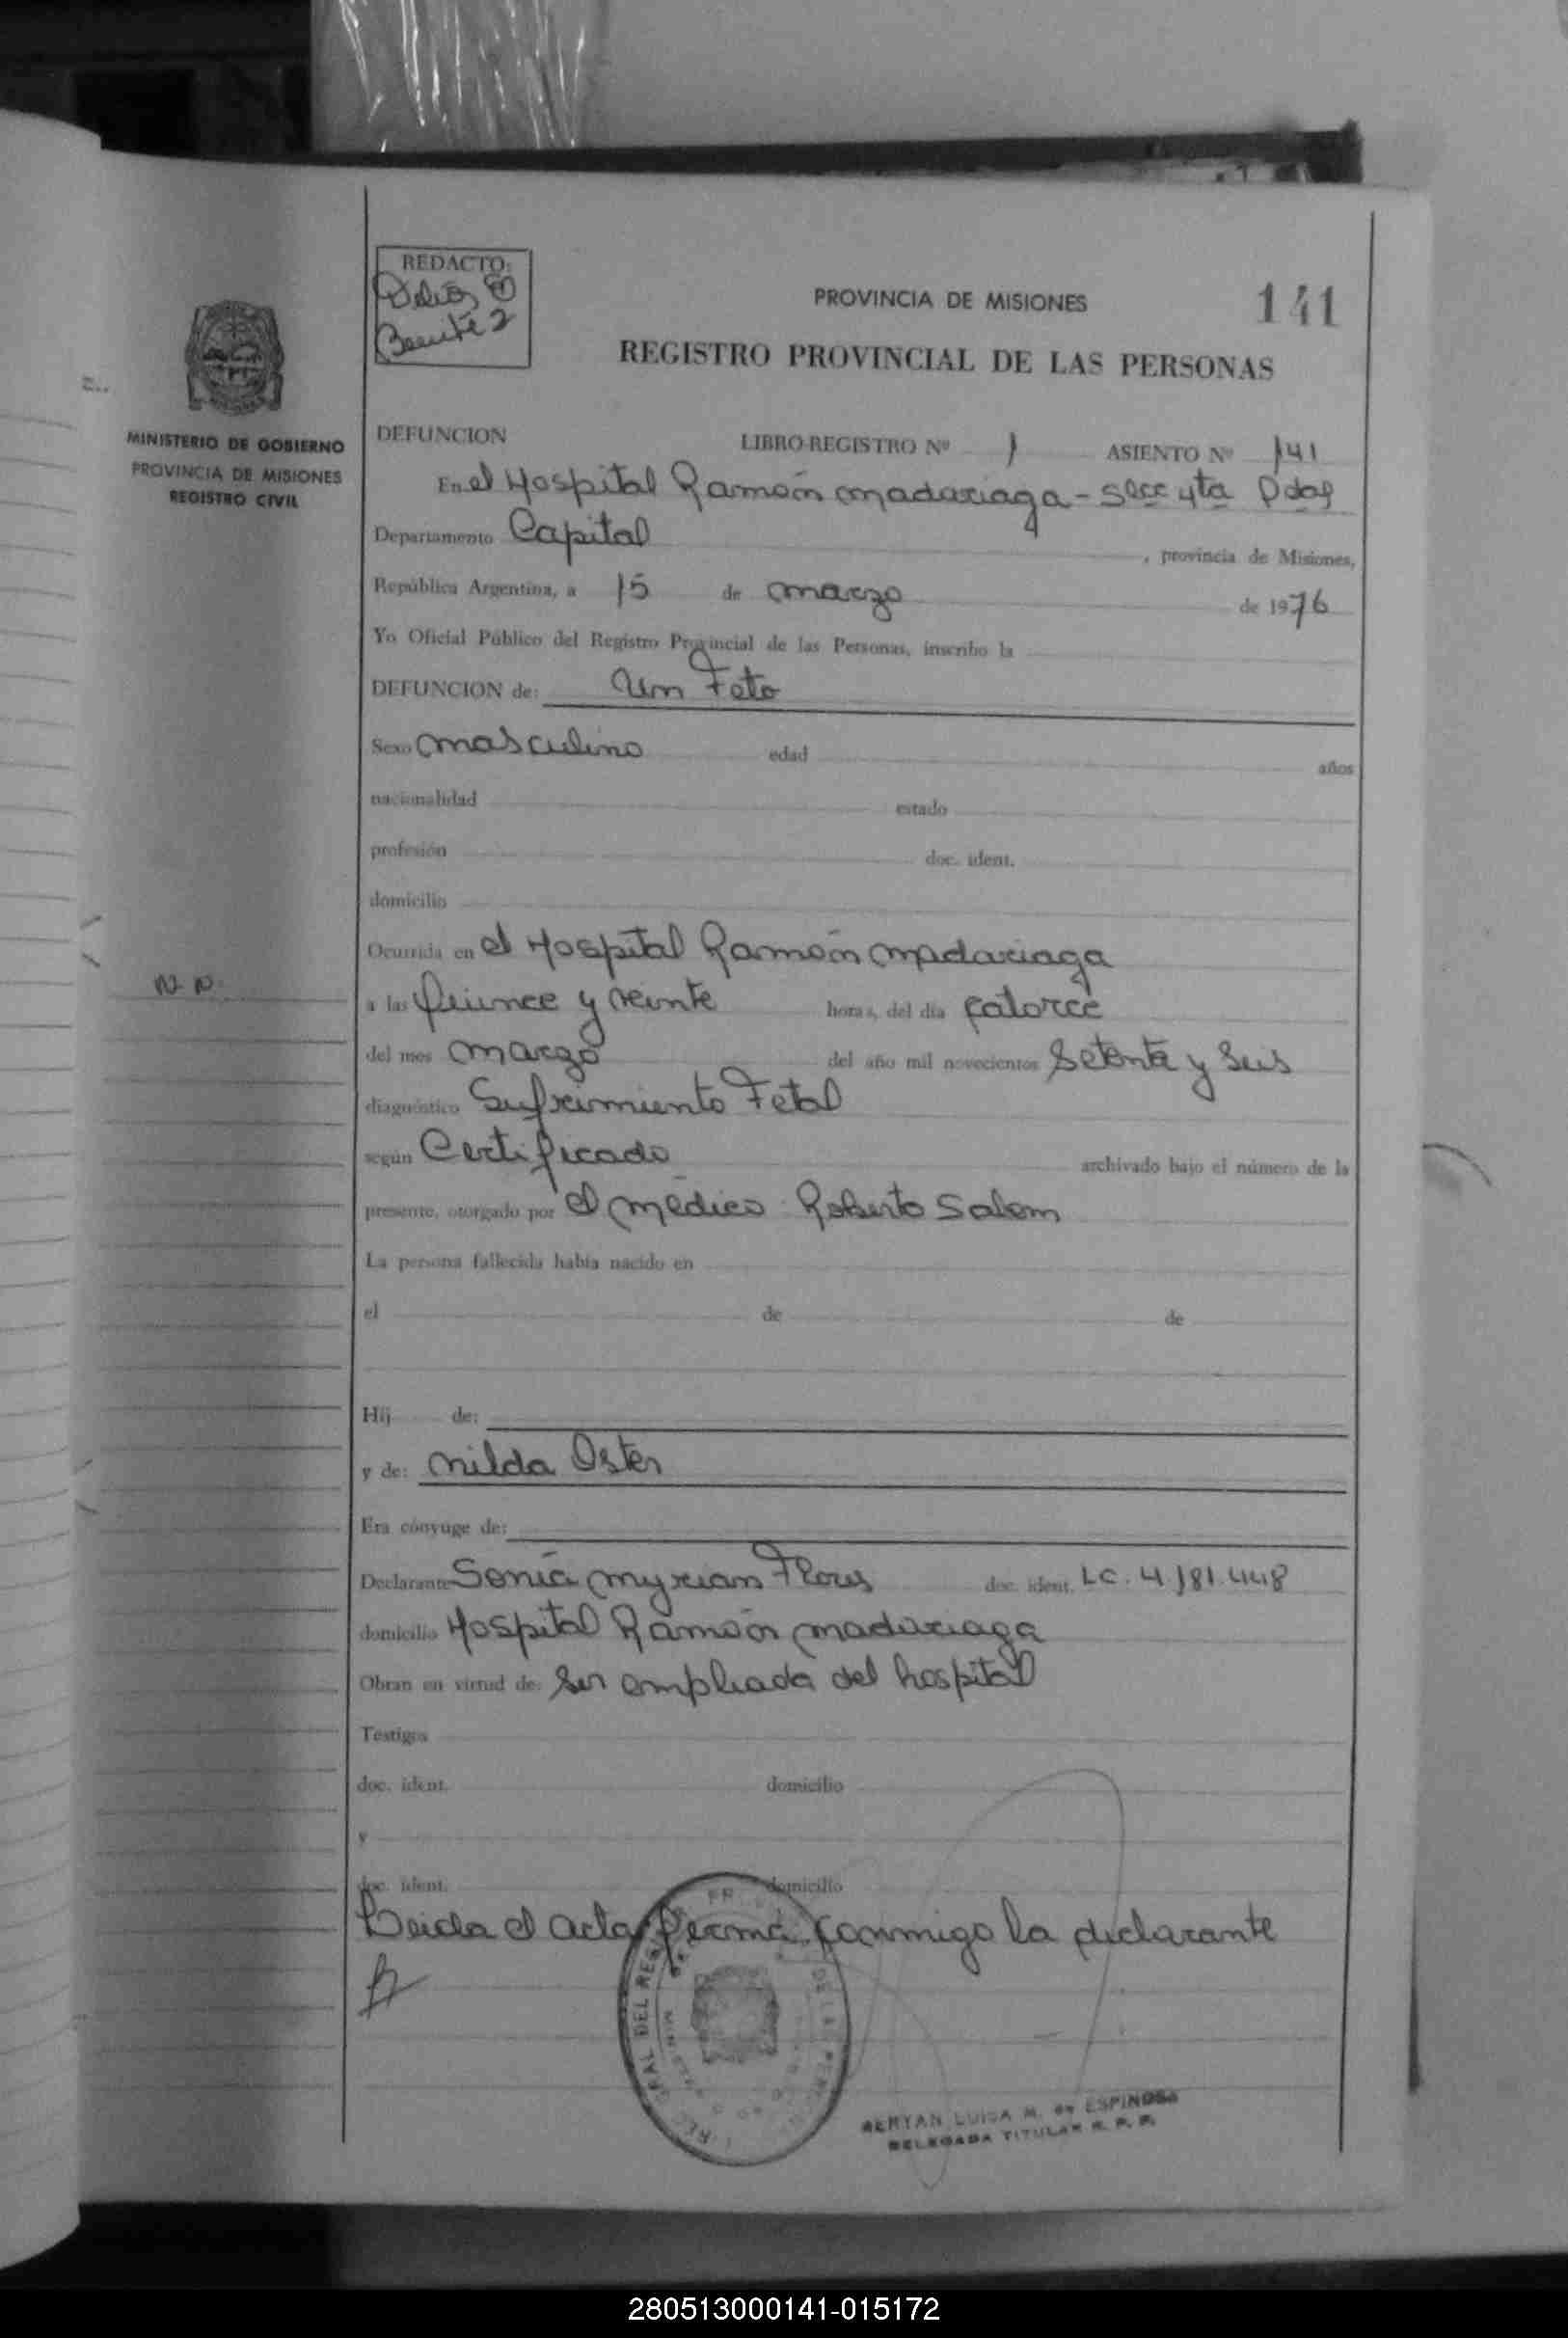 REDACTO:
Benite z
PROVINCIA DE MISIONES
141
REGISTRO PROVINCIAL DE LAS PERSONAS
MINISTERIO DE GOBIERNO
PROVINCIA DE MISIONES
REGISTRO CIVIL
DEFUNCION LIBRO-REGISTRO Nº 1 ASIENTO Nº 141
En el Hospital Ramón madariaga - Secc 4ta Pdas
Departamento Capital , provincia de Misiones,
República Argentina, a 15 de marzo de 1976
Yo Oficial Público del Registro Provincial de las Personas, inscribo la
DEFUNCION de: Un Feto
Sexo masculino edad años
nacionalidad estado
profesión doc. ident.
domicilio
Ocurrida en el Hospital Ramón madariaga
N. N.
a las quince y veinte horas, del día catorce
del mes marzo del año mil novecientos Setenta y Seis
diagnóstico Sufrimiento Fetal
según Certificado archivado bajo el número de la
presente, otorgado por el médico Roberto Salem
La persona fallecida había nacido en
el de de
Hij de:
y de: nilda Oster
Era cónyuge de:
Declarante Sonia myrian Flores doc. ident. LC. 4.181.448
domicilio Hospital Ramón madariaga
Obran en virtud de: Ser empleada del hospital
Testigos
doc. ident. domicilio
y
doc. ident. domicilio
Leida el acta firma conmigo la declarante
LUISA M. de ESPINOSA
DELEGADA TITULAR R. P. P.
280513000141-015172